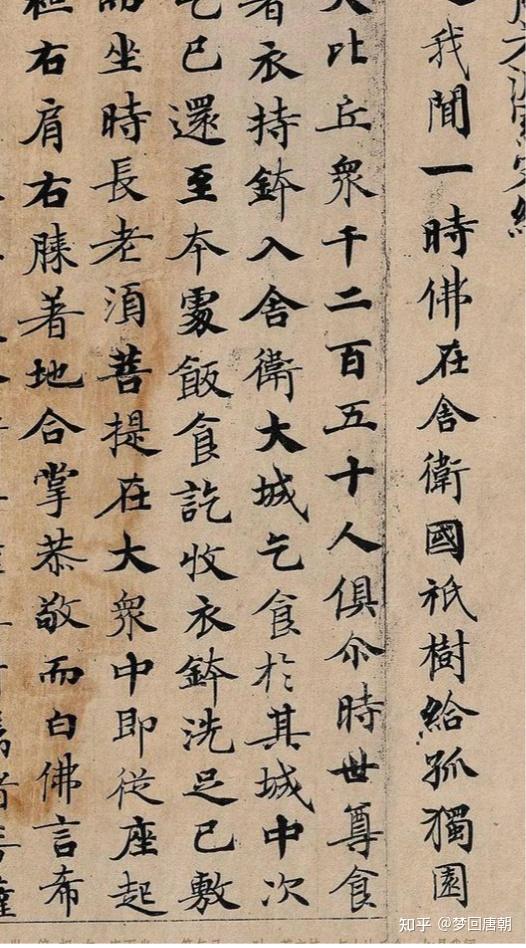 我聞一時佛在舍衛國祇樹給孤獨園
大比丘衆千二百五十人俱尒時世尊食
著衣持鉢入舍衛大城乞食扵其城中次
乞已還至夲處飯食訖收衣鉢洗足已敷
而坐時長老須菩提在大衆中即従座起
袒右肩右膝著地合掌恭敬而白佛言希
知乎 @梦回唐朝